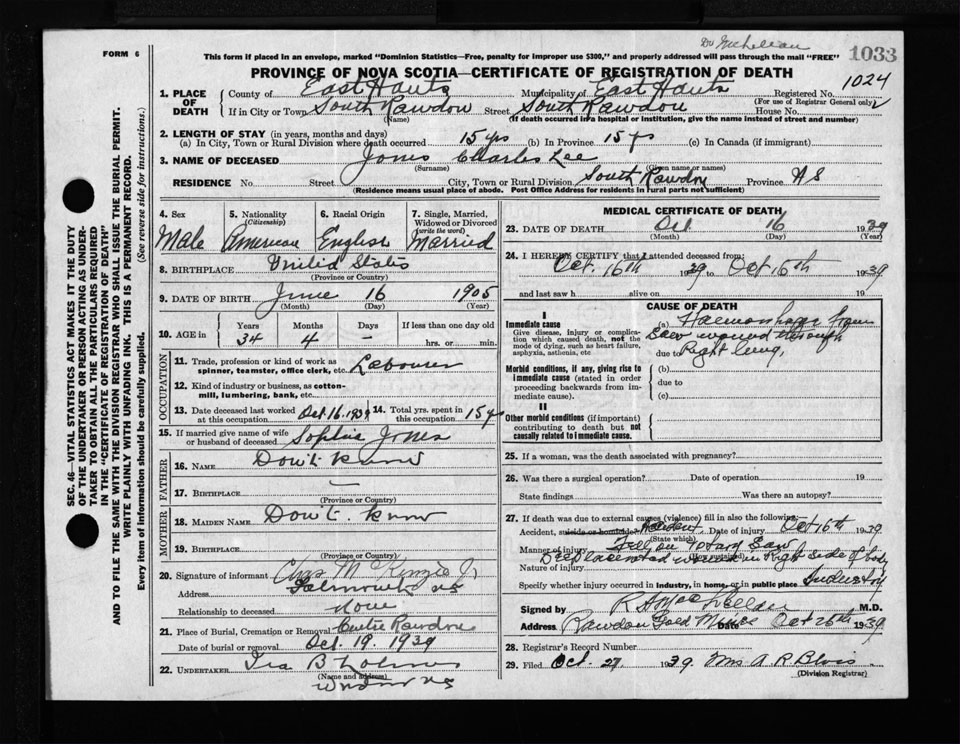 Dr McLellan
FORM 6
This form if placed in an envelope, marked "Dominion Statistics—Free, penalty for improper use $300," and properly addressed will pass through the mail "FREE"
1033
PROVINCE OF NOVA SCOTIA—CERTIFICATE OF REGISTRATION OF DEATH
1. PLACE OF DEATH
County of East Hants Municipality of East Hants Registered No. 1024
(For use of Registrar General only)
If in City or Town South Rawdon Street South Rawdon House No.
(Name) (If death occurred in a hospital or institution, give the name instead of street and number)
2. LENGTH OF STAY (in years, months and days)
(a) In City, Town or Rural Division where death occurred 15 yrs (b) In Province 15 yrs (c) In Canada (if immigrant)
3. NAME OF DECEASED Jones Charles Lee
(Surname) (Given name or names)
RESIDENCE No. Street City, Town or Rural Division South Rawdon Province N S
(Residence means usual place of abode. Post Office Address for residents in rural parts not sufficient)
4. Sex Male
5. Nationality (Citizenship) American
6. Racial Origin English
7. Single, Married, Widowed or Divorced (write the word) Married
8. BIRTHPLACE United States
(Province or Country)
9. DATE OF BIRTH June 16 1905
(Month) (Day) (Year)
10. AGE in Years Months Days If less than one day
34 4 – hrs. or min.
OCCUPATION
11. Trade, profession or kind of work as spinner, teamster, office clerk, etc. Labourer
12. Kind of industry or business, as cotton-mill, lumbering, bank, etc.
13. Date deceased last worked at this occupation Oct 16 1939
14. Total yrs. spent in this occupation 15 yrs
15. If married give name of wife or husband of deceased Sophia Jones
FATHER
16. NAME Don't know
17. BIRTHPLACE —
(Province or Country)
MOTHER
18. MAIDEN NAME Don't know
19. BIRTHPLACE
(Province or Country)
20. Signature of informant Chas McKenzie Jr
Address Falmouth NS
Relationship to deceased None
21. Place of Burial, Cremation or Removal Centre Rawdon
Date of burial or removal Oct. 19, 1939
22. UNDERTAKER Ira B
(Name and address)
Windsor NS
MEDICAL CERTIFICATE OF DEATH
23. DATE OF DEATH Oct. 16 1939
(Month) (Day) (Year)
24. I HEREBY CERTIFY that I attended deceased from:
Oct. 16th 1939 to Oct 16th 1939
and last saw h alive on 19
CAUSE OF DEATH
I
Immediate cause
Give disease, injury or complication which caused death, not the mode of dying, such as heart failure, asphyxia, asthenia, etc
(a) Haemorrhage from
Saw wound through
due to Right lung,
Morbid conditions, if any, giving rise to immediate cause (stated in order proceeding backwards from immediate cause).
(b)
due to
(c)
II
Other morbid conditions (if important) contributing to death but not causally related to immediate cause.
25. If a woman, was the death associated with pregnancy?
26. Was there a surgical operation? Date of operation 19
State findings Was there an autopsy?
27. If death was due to external causes (violence) fill in also the following:
Accident, suicide or homicide? Accident Date of injury Oct 16th 1939
(State which)
Manner of injury Fell on rotary saw
(How sustained)
Nature of injury Deep lacerated wound in Right side of body
Specify whether injury occurred in industry, in home, or in public place Industry
Signed by R A MacLellan M.D.
Address Rawdon Gold Mines Date Oct 26th 1939
28. Registrar's Record Number
29. Filed Oct. 27 1939. Mrs A R Blois
(Division Registrar)
SEC. 46—VITAL STATISTICS ACT MAKES IT THE DUTY
OF THE UNDERTAKER OR PERSON ACTING AS UNDER-
TAKER TO OBTAIN ALL THE PARTICULARS REQUIRED
IN THE "CERTIFICATE OF REGISTRATION OF DEATH"
AND TO FILE THE SAME WITH THE DIVISION REGISTRAR WHO SHALL ISSUE THE BURIAL PERMIT.
WRITE PLAINLY WITH UNFADING INK. THIS IS A PERMANENT RECORD.
Every item of information should be carefully supplied. (See reverse side for instructions.)